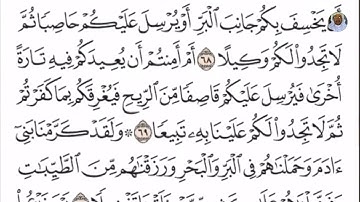 أَن يَخْسِفَ بِكُمْ جَانِبَ ٱلْبَرِّ أَوْ يُرْسِلَ عَلَيْكُمْ حَاصِبًا ثُمَّ
لَا تَجِدُوا۟ لَكُمْ وَكِيلًا ٦٨ أَمْ أَمِنتُمْ أَن يُعِيدَكُمْ فِيهِ تَارَةً
أُخْرَىٰ فَيُرْسِلَ عَلَيْكُمْ قَاصِفًا مِّنَ ٱلرِّيحِ فَيُغْرِقَكُم بِمَا كَفَرْتُمْ
ثُمَّ لَا تَجِدُوا۟ لَكُمْ عَلَيْنَا بِهِۦ تَبِيعًا ٦٩ ۞ وَلَقَدْ كَرَّمْنَا بَنِىٓ
ءَادَمَ وَحَمَلْنَٰهُمْ فِى ٱلْبَرِّ وَٱلْبَحْرِ وَرَزَقْنَٰهُم مِّنَ ٱلطَّيِّبَٰتِ